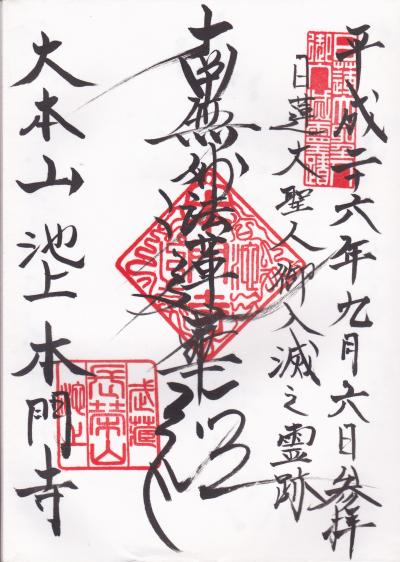 平成二十六年九月六日参拝
日蓮大聖人御入滅之霊跡
南無妙法蓮華経
大本山 池上 本門寺
武蔵
長栄山
池上